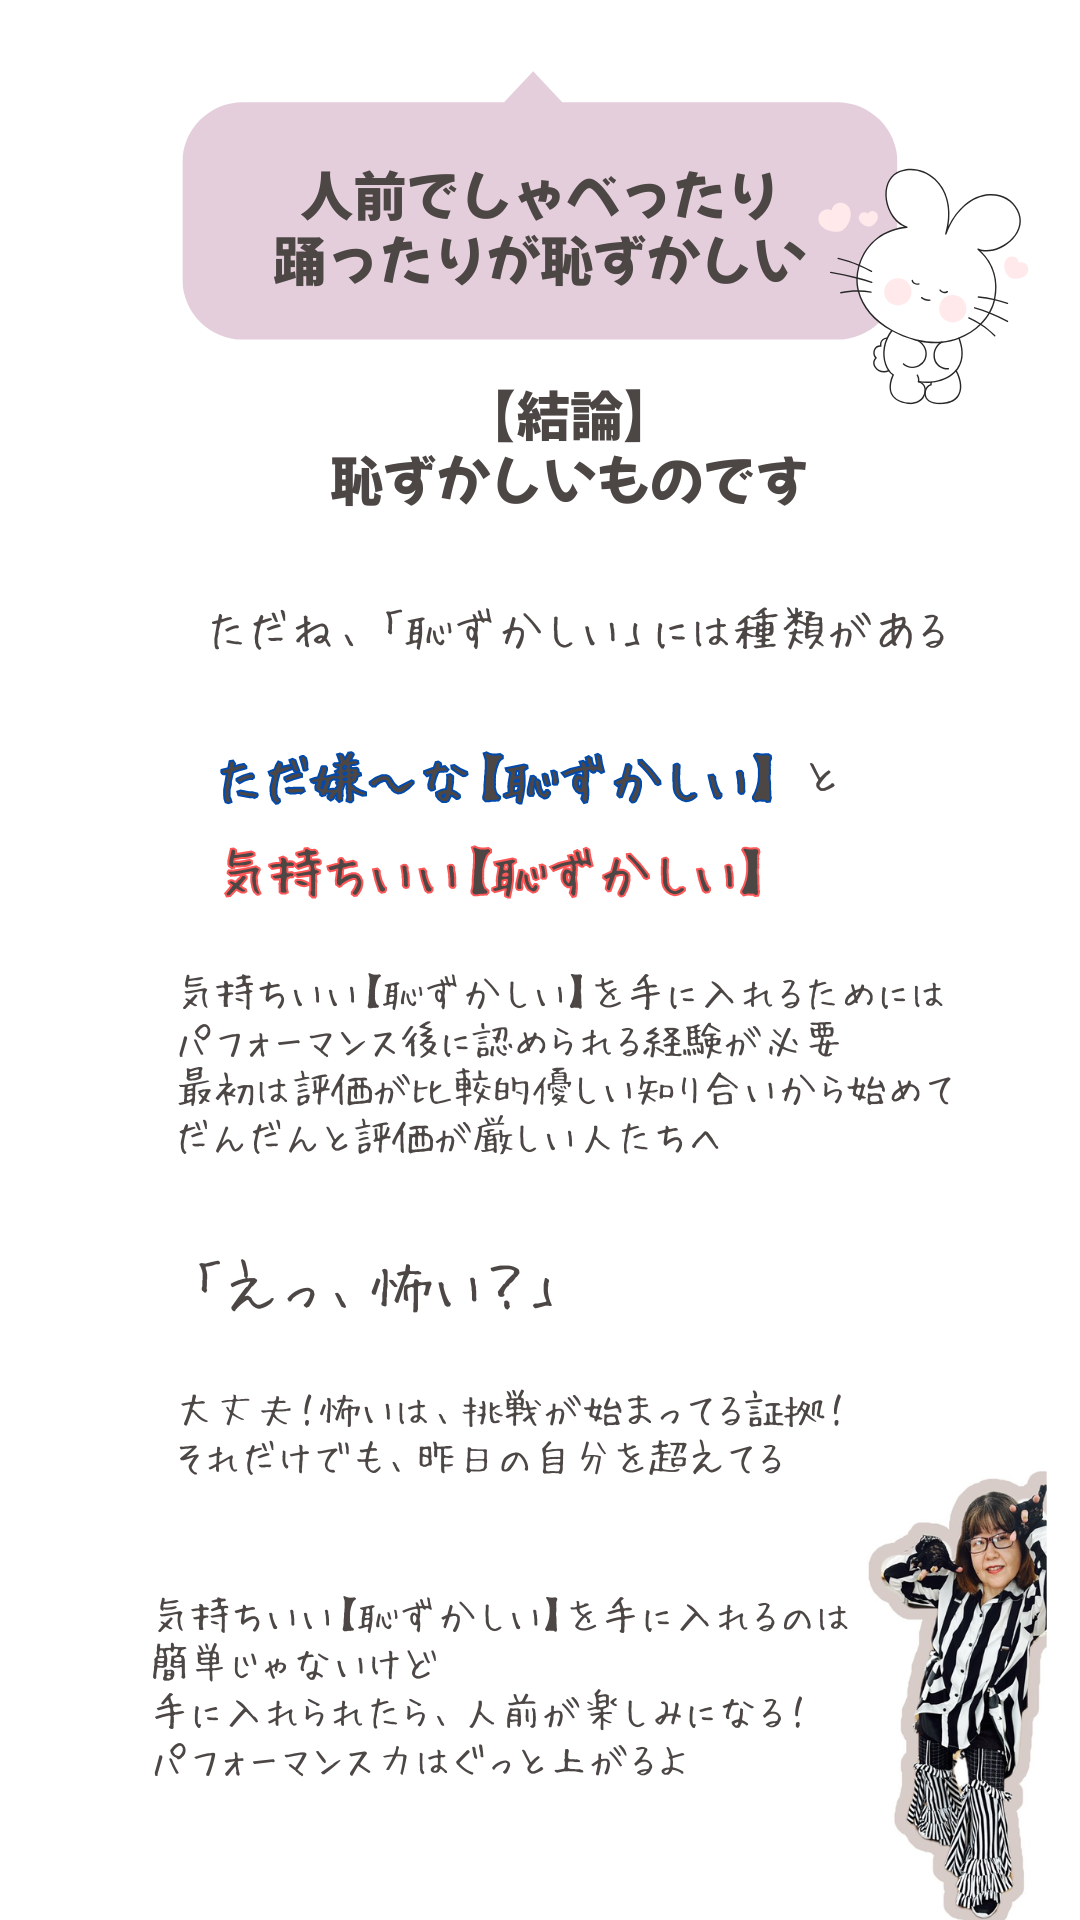 人前でしゃべったり
踊ったりが恥ずかしい
【結論】
恥ずかしいものです
ただね、「恥ずかしい」には種類がある
ただ嫌〜な【恥ずかしい】と
気持ちいい【恥ずかしい】
気持ちいい【恥ずかしい】を手に入れるためには
パフォーマンス後に認められる経験が必要
最初は評価が比較的優しい知り合いから始めて
だんだんと評価が厳しい人たちへ
「えっ、怖い？」
大丈夫！怖いは、挑戦が始まってる証拠！
それだけでも、昨日の自分を超えてる
気持ちいい【恥ずかしい】を手に入れるのは
簡単じゃないけど
手に入れられたら、人前が楽しみになる！
パフォーマンス力はぐっと上がるよ